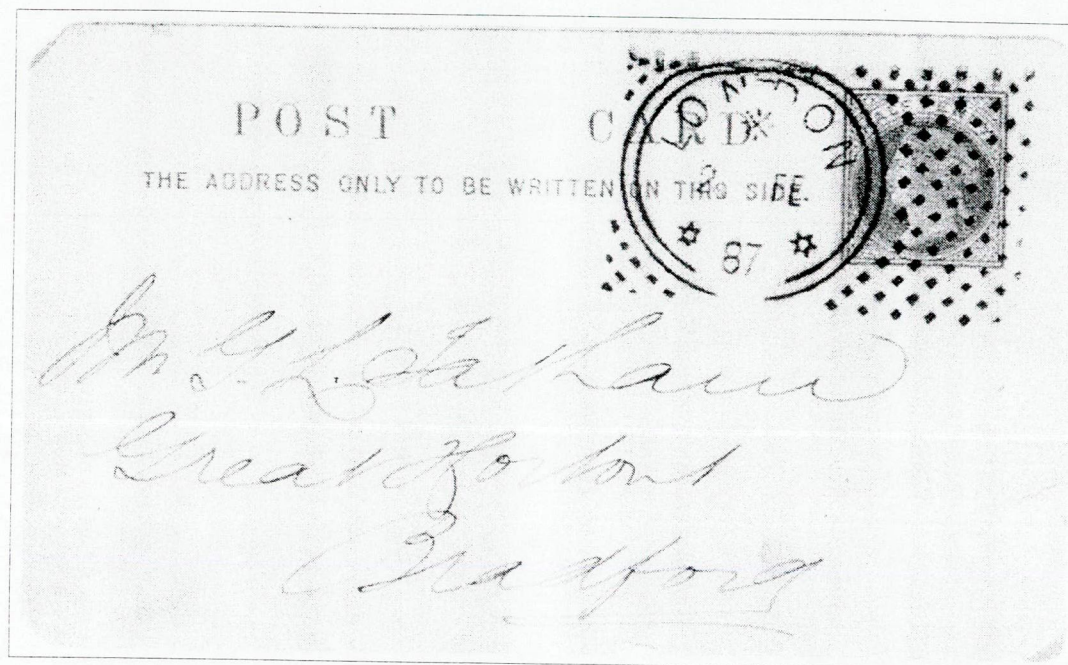 POST CARD
THE ADDRESS ONLY TO BE WRITTEN ON THIS SIDE.
LONDON
2 FE
87
Great Horton
Bradford